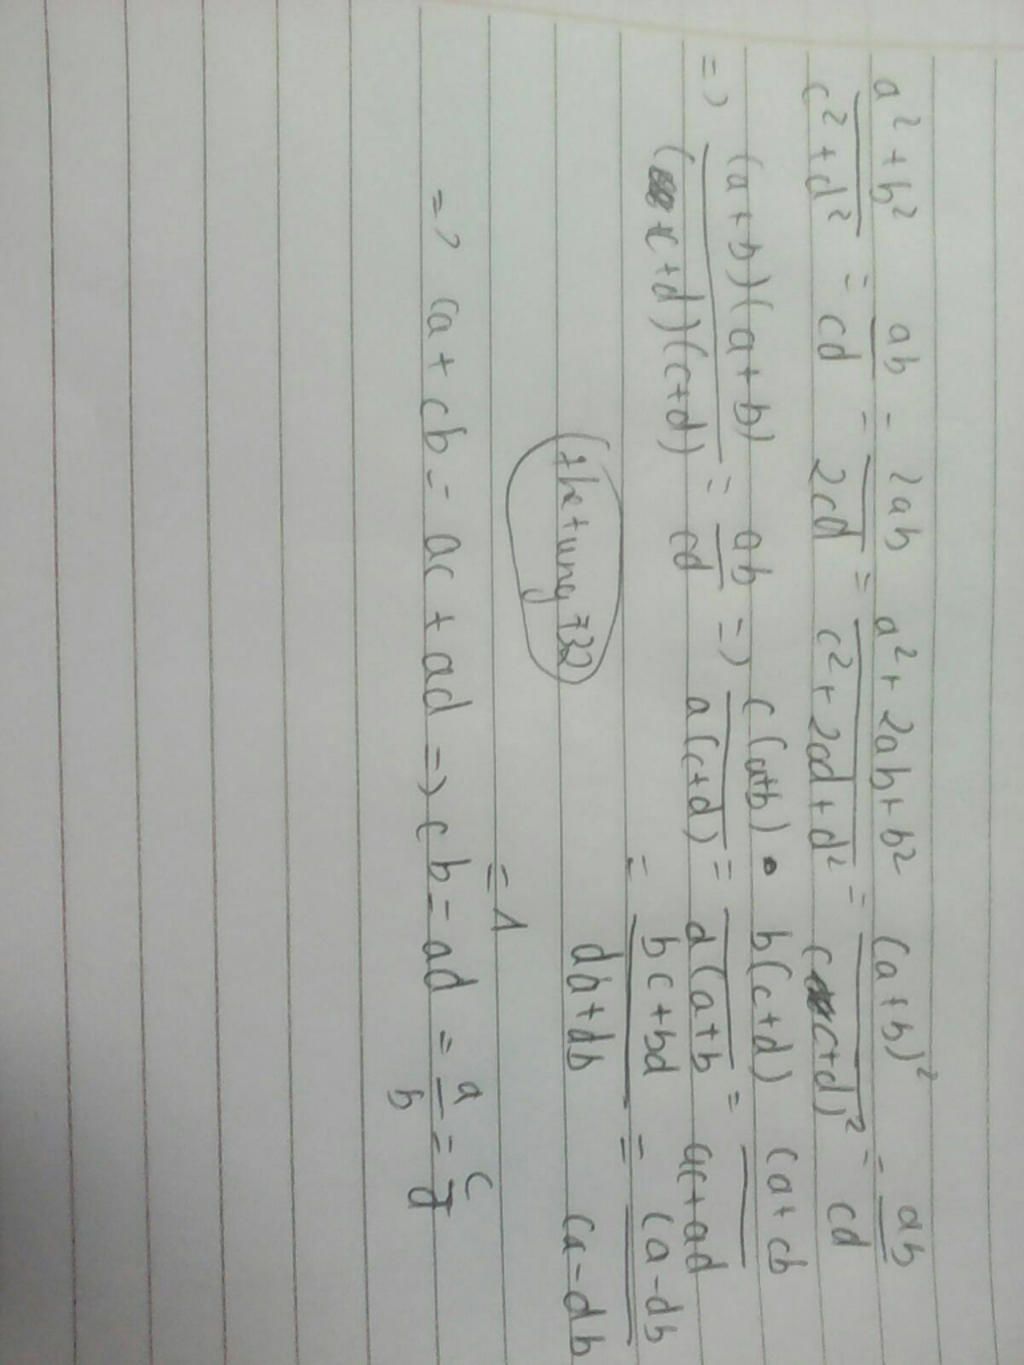 a²+b²/c²+d² = ab/cd = 2ab/2cd = a²+2ab+b²/c²+2cd+d² = (a+b)²/(c+d)² = ab/cd
=> (a+b)(a+b)/(c+d)(c+d) = ab/cd => c(a+b)/a(c+d) = b(c+d)/d(a+b = ca+cb/ac+ad
= bc+bd/da+db = ca-db/ca-db
(thetung732)
= 1
=> ca+cb = ac+ad => cb = ad = a/b = c/d